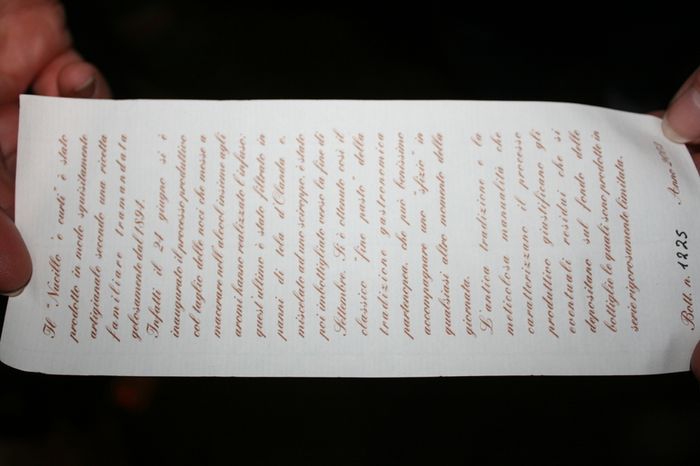 Il "Nucillo e curti" è stato
prodotto in modo squisitamente
artigianale secondo una ricetta
familiare tramandata
gelosamente dal 1894.
Infatti il 24 giugno si è
inaugurato il processo produttivo
col taglio delle noci che messe a
macerare nell'alcool insieme agli
aromi hanno realizzato l'infuso;
quest'ultimo è stato filtrato in
panni di tela d'Olanda e
miscelato ad uno sciroppo; è stato
poi imbottigliato verso la fine di
Settembre. Si è ottenuto così il
classico "fine pasto" della
tradizione gastronomica
partenopea, che può benissimo
accompagnare uno "sfizio" in
qualsiasi altro momento della
giornata.
L'antica tradizione e la
meticolosa manualità che
caratterizzano il processo
produttivo giustificano gli
eventuali residui che si
depositano sul fondo delle
bottiglie le quali sono prodotte in
serie rigorosamente limitata.
Bott. n. 1225 Anno